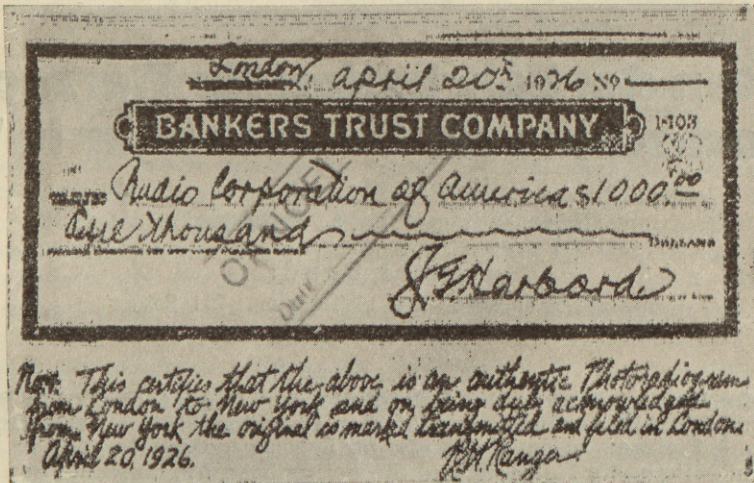 London, April 20th 1926 No
BANKERS TRUST COMPANY 1-103
Radio Corporation of America $1000.00
One thousand DOLLARS
J G Harbord
Note: This certifies that the above is an authentic Photoradiogram
from London to New York and on being duly acknowledged
from New York the original is marked transmitted and filed in London.
April 20, 1926. R H Ranger